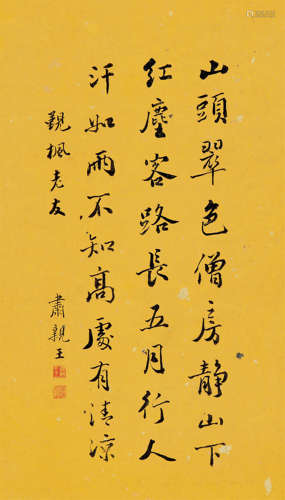 山頭翠色僧房靜山下
紅塵客路長五月行人
汗如雨不知高處有清涼
觐楓老友
肅親王